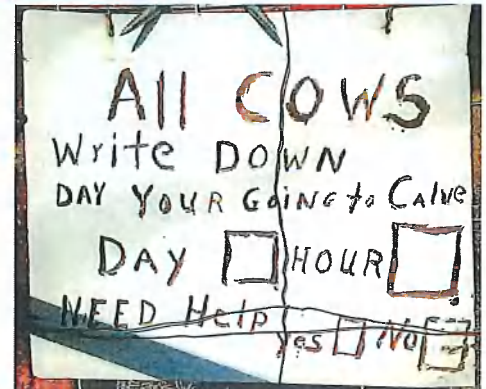 All COWS
Write DOWN
DAY YOUR GOiNG to CAlve
DAY HOUR
NEED Help
Yes No